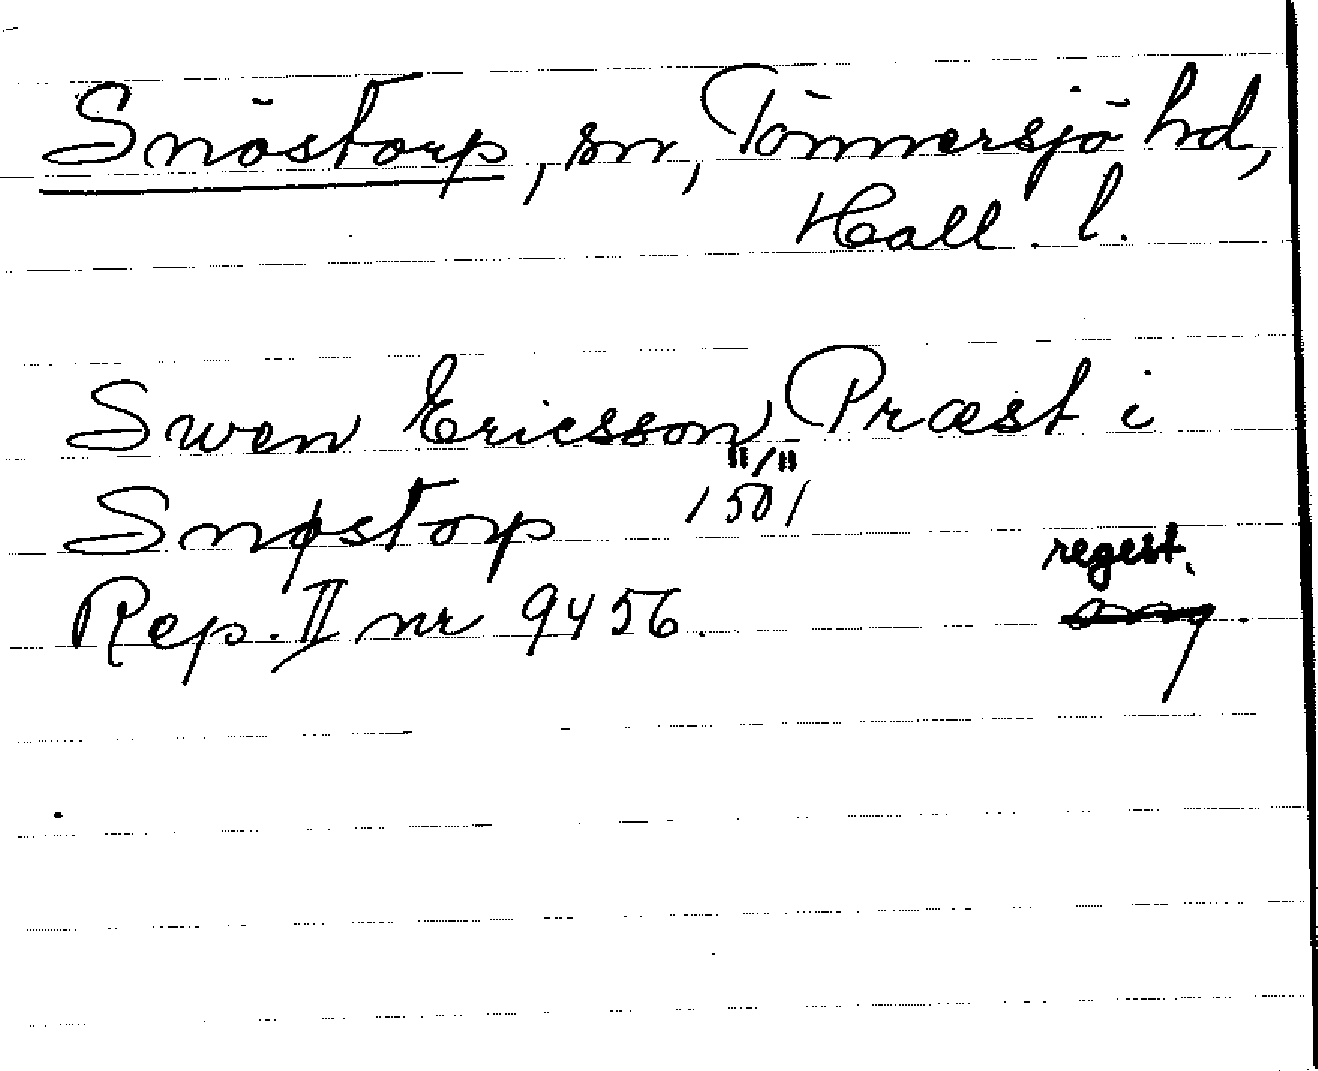 Snöstorp, sn, Tönnersjö hd,
Hall. l.
Swen Ericsson, Præst i
Snøstorp 11/11 1501
regest.
Rep. II nr 9456.